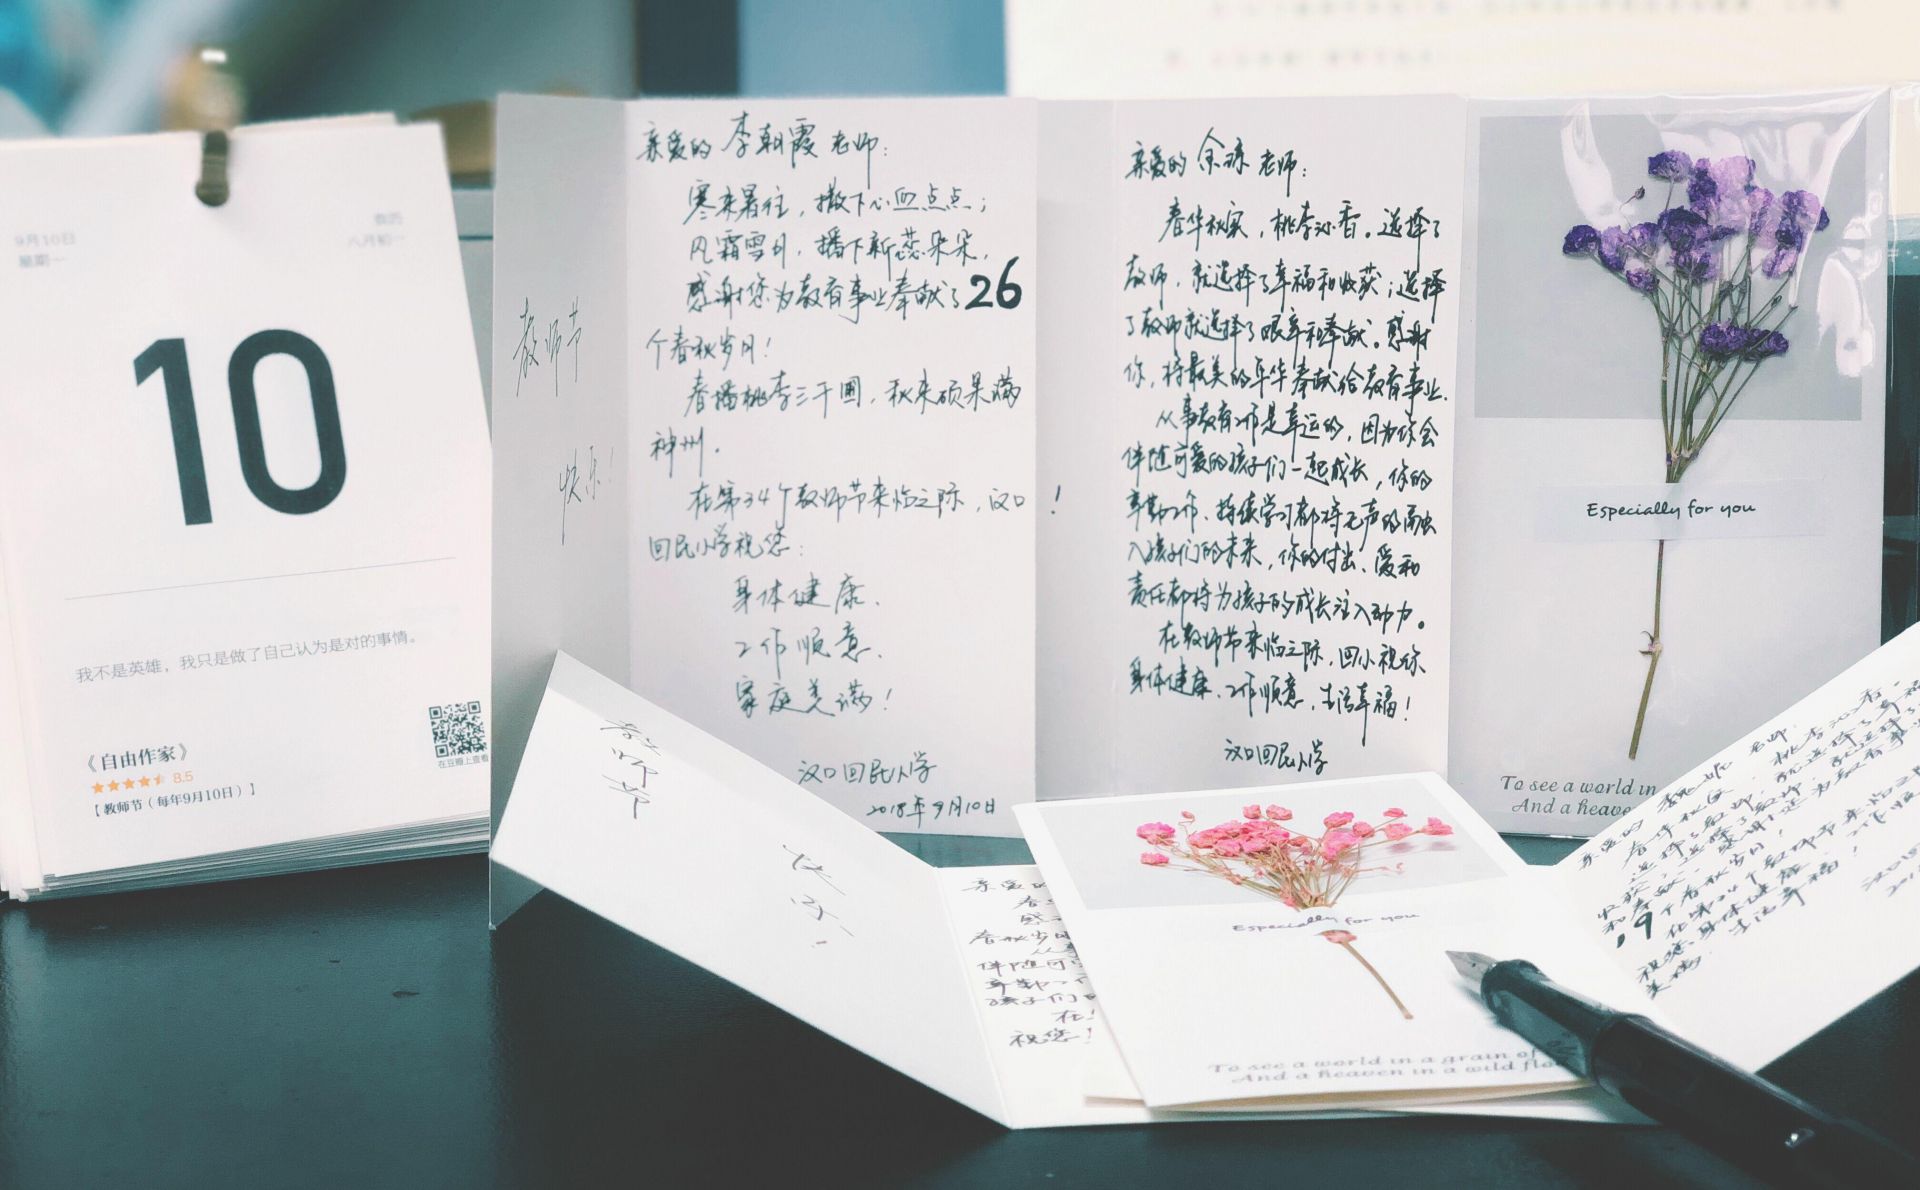 9月10日
星期一
农历
八月初一
10
我不是英雄，我只是做了自己认为是对的事情。
《自由作家》
8.5
在豆瓣上查看
【教师节（每年9月10日）】
教师节
快乐！
亲爱的李朝霞老师：
寒来暑往，撒下心血点点；
风霜雪月，播下新蕊朵朵，
感谢您为教育事业奉献了26
个春秋岁月！
春播桃李三千圃，秋来硕果满
神州。
在第34个教师节来临之际，汉口
回民小学祝您：
身体健康、
工作顺意、
家庭美满！
汉口回民小学
2018年9月10日
！
亲爱的余琼老师：
春华秋实，桃李沁香。选择了
教师，就选择了幸福和收获；选择
了教师就选择了艰辛和奉献。感谢
你，将最美的年华奉献给教育事业.
从事教育工作是幸运的，因为你会
伴随可爱的孩子们一起成长，你的
辛勤工作、持续学习都将无声的融
入孩子们的未来，你的付出、爱和
责任都将为孩子的成长注入动力。
在教师节来临之际，回小祝你
身体健康、工作顺意，生活幸福！
汉口回民小学
Especially for you
To see a world in
And a heave
教师节
快乐！
亲爱的
春
感
春秋岁月
从事
伴随可
辛勤工
孩子们
在
祝您！
Especially for you
To see a world in a grain of
And a heaven in a wild flo
亲爱的 老师